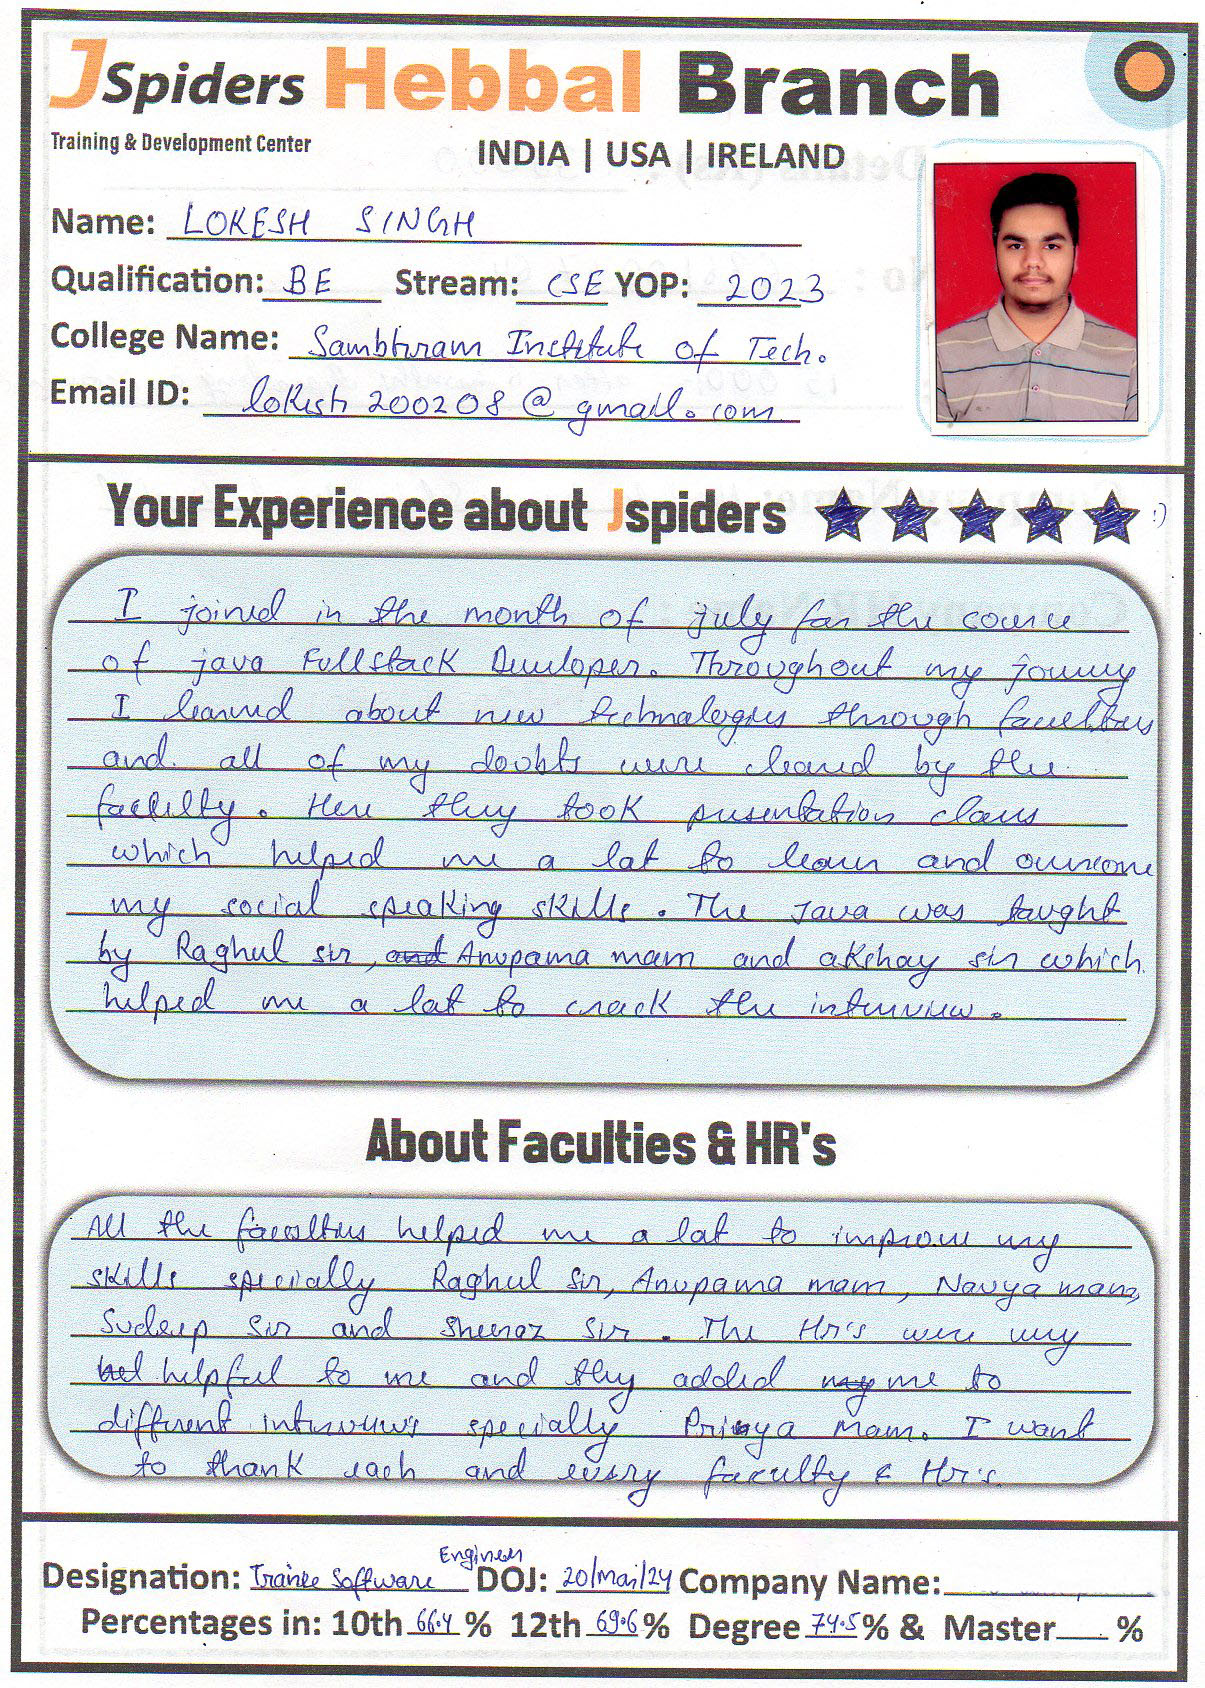 JSpiders Hebbal Branch
Training & Development Center
INDIA | USA | IRELAND
Name: LOKESH SINGH
Qualification: BE Stream: CSE YOP: 2023
College Name: Sambhram Institute of Tech.
Email ID: lokesh200208@gmail.com
Your Experience about Jspiders :)
I joined in the month of july for the course
of java Fullstack Developer. Throughout my jouney
I learned about new technologies through faculties
and all of my doubts were cleared by the
facility. Here they took presentation class
which helped me a lot to learn and overcome
my social speaking skills. The Java was taught
by Raghul sir, and Anupama mam and akshay sir which
helped me a lot to crack the interview.
About Faculties & HR's
All the faculties helped me a lot to improve my
skills specially Raghul Sir, Anupama mam, Navya mam,
Sudeep Sir and Sheeraz Sir. The Hr's were very
hel helpful to me and they added my me to
different interviews specially Priya Mam. I want
to thank each and every faculty & Hr's.
Designation: Trainee Software Engineer DOJ: 20/Mai/24 Company Name:
Percentages in: 10th 66.4 % 12th 69.6 % Degree 74.5 % & Master %